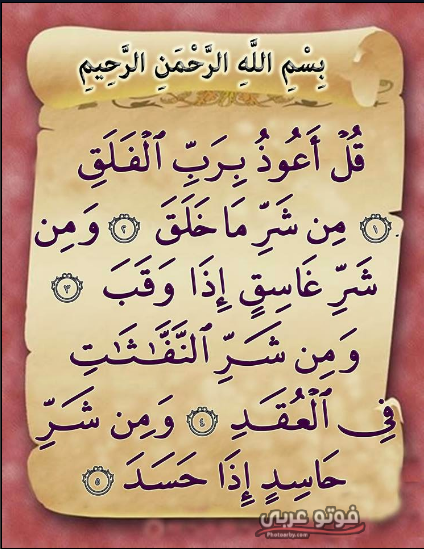 بِسْمِ اللَّهِ الرَّحْمَنِ الرَّحِيمِ
قُلْ أَعُوذُ بِرَبِّ ٱلْفَلَقِ
۝١ مِن شَرِّ مَا خَلَقَ ۝٢ وَمِن
شَرِّ غَاسِقٍ إِذَا وَقَبَ ۝٣
وَمِن شَرِّ ٱلنَّفَّـٰثَـٰتِ
فِى ٱلْعُقَدِ ۝٤ وَمِن شَرِّ
حَاسِدٍ إِذَا حَسَدَ ۝٥
فوتو عربي
Photoarby.com